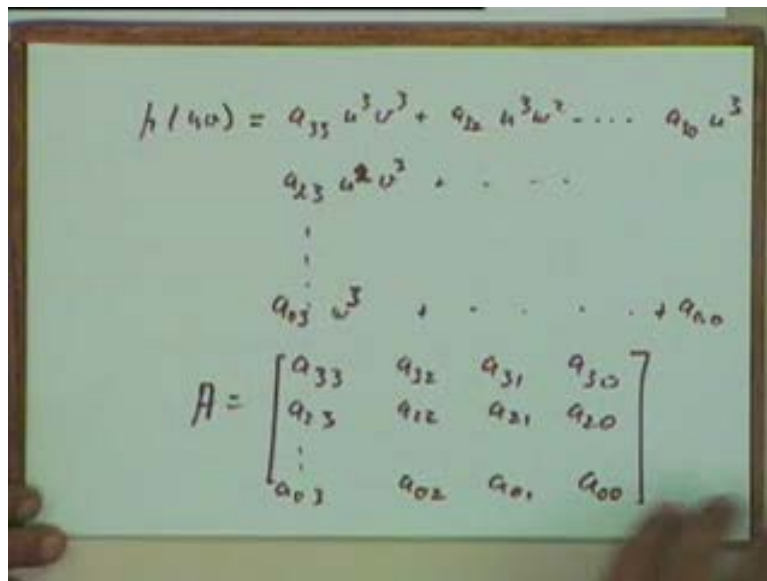 p(uv) = a₃₃ u³v³ + a₃₂ u³v² - . . . . a₃₀ u³
a₂₃ u²v³ + . . - - .
⋮
a₀₃ v³ + . . . . + a₀₀
A = [ a₃₃ a₃₂ a₃₁ a₃₀
a₂₃ a₂₂ a₂₁ a₂₀
⋮
a₀₃ a₀₂ a₀₁ a₀₀ ]